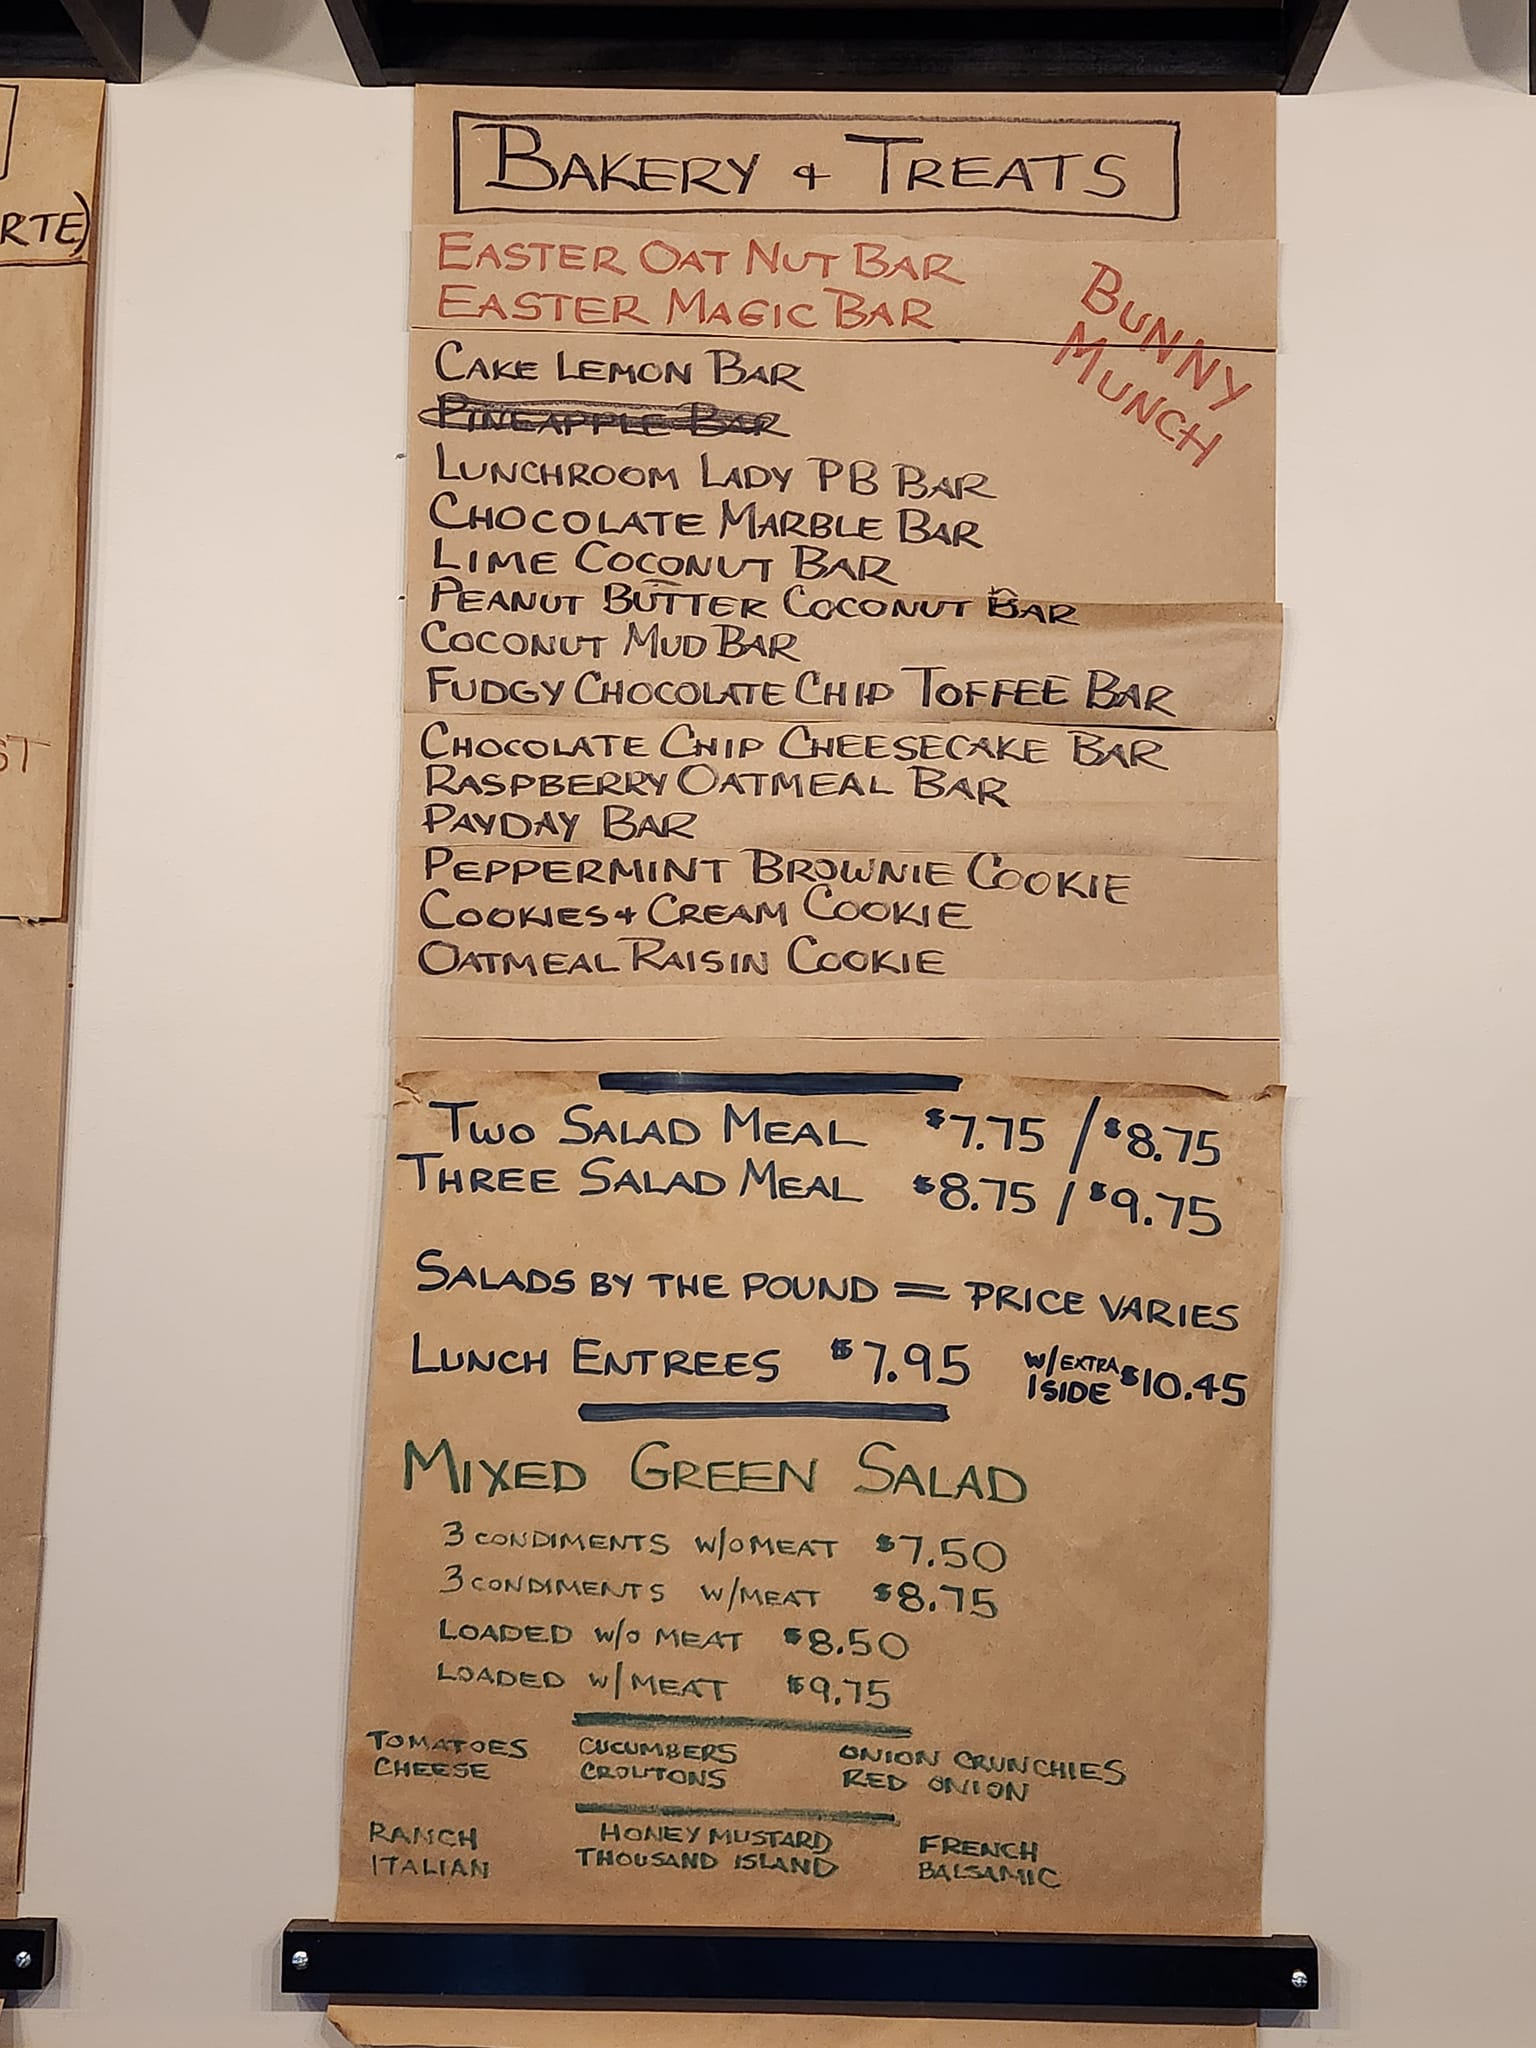 RTE)
ST
BAKERY & TREATS
EASTER OAT NUT BAR
EASTER MAGIC BAR
BUNNY
MUNCH
CAKE LEMON BAR
PINEAPPLE BAR
LUNCHROOM LADY PB BAR
CHOCOLATE MARBLE BAR
LIME COCONUT BAR
PEANUT BUTTER COCONUT BAR
COCONUT MUD BAR
FUDGY CHOCOLATE CHIP TOFFEE BAR
CHOCOLATE CHIP CHEESECAKE BAR
RASPBERRY OATMEAL BAR
PAYDAY BAR
PEPPERMINT BROWNIE COOKIE
COOKIES & CREAM COOKIE
OATMEAL RAISIN COOKIE
TWO SALAD MEAL $7.75 / $8.75
THREE SALAD MEAL $8.75 / $9.75
SALADS BY THE POUND = PRICE VARIES
LUNCH ENTREES $7.95 W/EXTRA 1 SIDE $10.45
MIXED GREEN SALAD
3 CONDIMENTS W/O MEAT $7.50
3 CONDIMENTS W/MEAT $8.75
LOADED W/O MEAT $8.50
LOADED W/MEAT $9.75
TOMATOES CUCUMBERS ONION CRUNCHIES
CHEESE CROUTONS RED ONION
RANCH HONEY MUSTARD FRENCH
ITALIAN THOUSAND ISLAND BALSAMIC